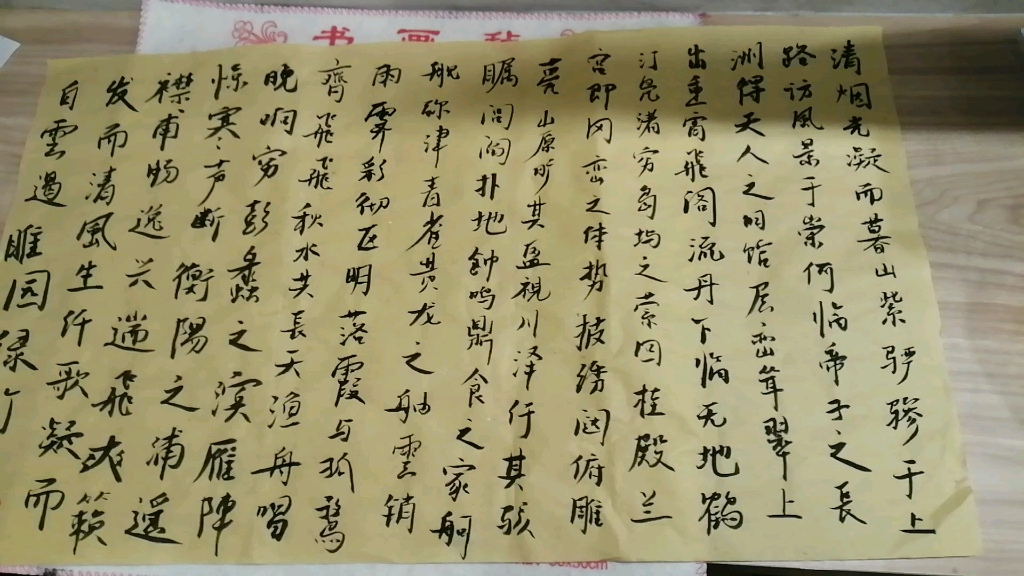 书画毡
清烟光凝而暮山紫骖于上
路访風景于崇阿临帝子之長
洲得天人之旧馆层峦耸翠上
出重霄飛阁流丹下临无地鹤
汀凫渚穷岛之萦回桂殿兰
宫即冈峦之体势披绣闼俯雕
甍山原旷其盈視川泽行其骇
瞩闾阎扑地鈡鸣鼎食之家舸
舰弥津青雀黄龙之舳雲销
雨霁彩彻区明落霞与孤鹜
齊飛飛秋水共長天渔舟唱
晚响穷彭蠡之濱雁陣
惊寒声断衡陽之浦遥
襟甫畅逸兴遄飛爽籁
发而清風生纤歌凝而
白雲遏睢园绿